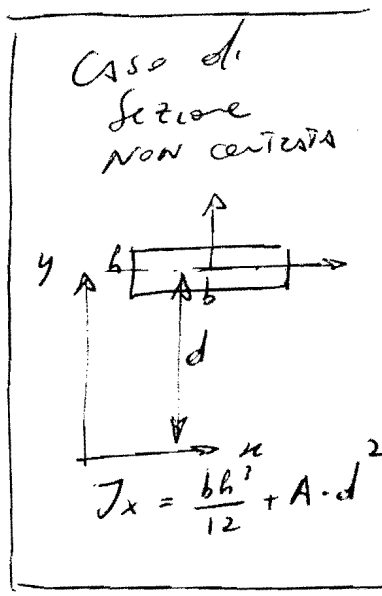 Caso di
Sezione
NON centrata
y h
b
d
x
Jx = bh³/12 + A·d²